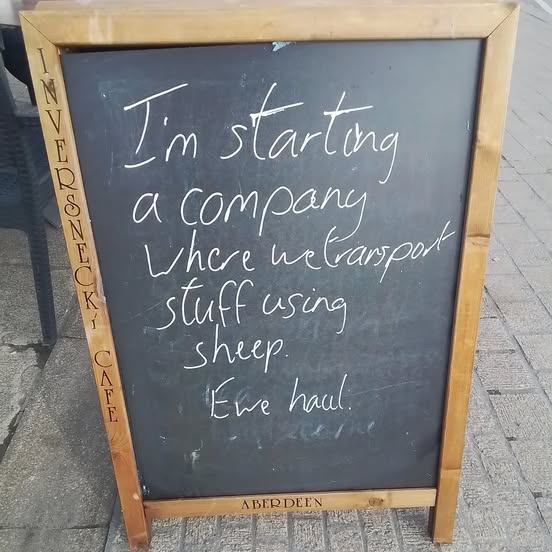 INVERSNECKY CAFE
I'm starting
a company
where we transport
stuff using
sheep.
Ewe haul.
ABERDEEN